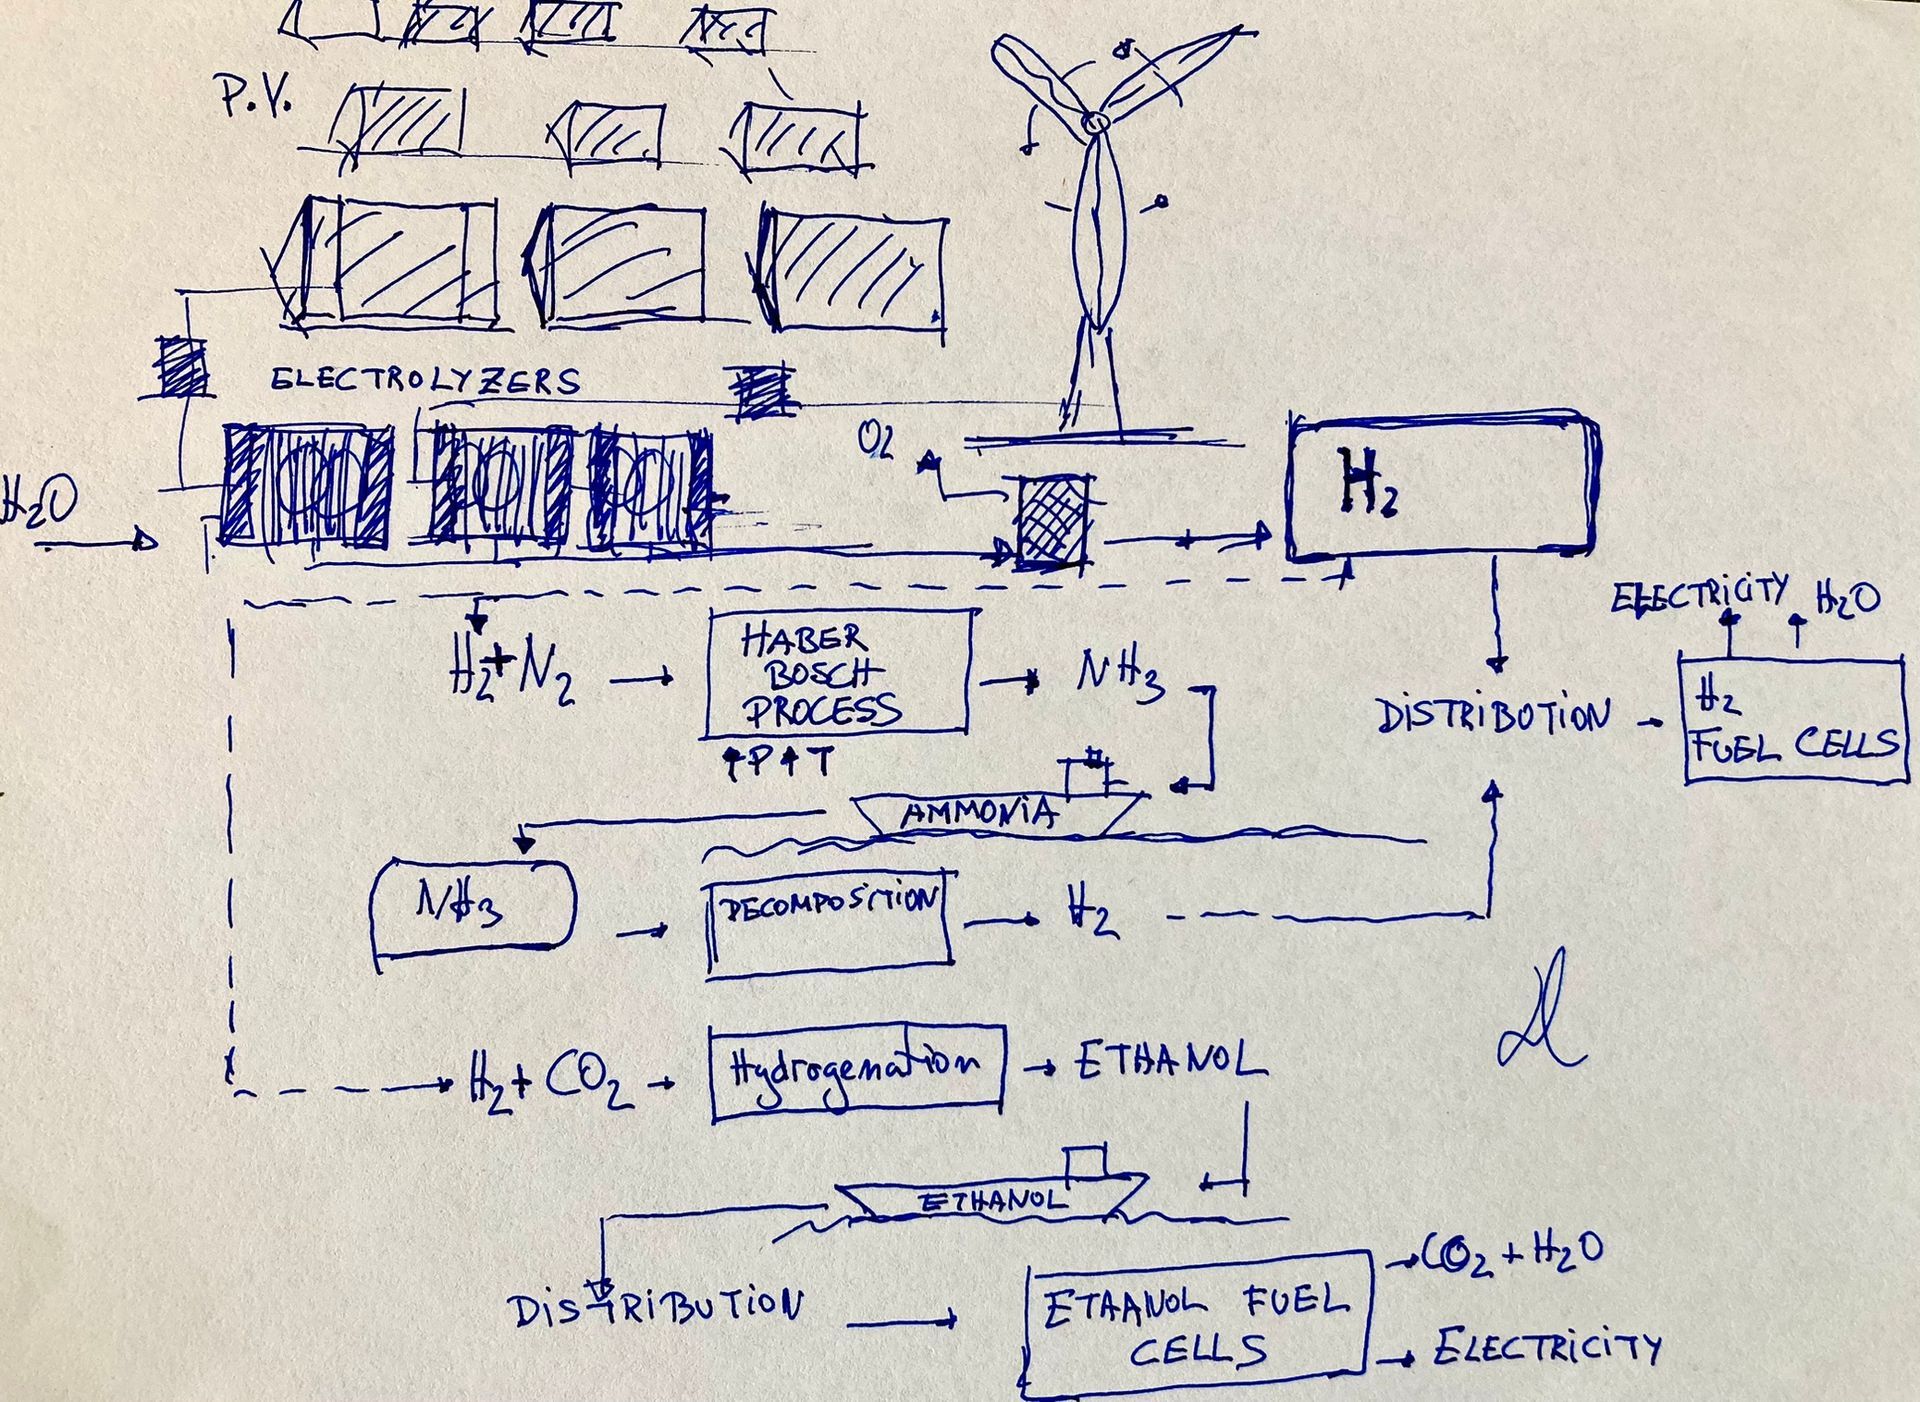 P.V.
ELECTROLYZERS
O2
H2O
H2
ELECTRICITY H2O
H2+N2
HABER
BOSCH
PROCESS
NH3
↑P↑T
DISTRIBUTION
H2
FUEL CELLS
AMMONIA
NH3
DECOMPOSITION
H2
H2+CO2
Hydrogenation
ETHANOL
ETHANOL
DISTRIBUTION
ETAANOL FUEL
CELLS
CO2+H2O
ELECTRICITY